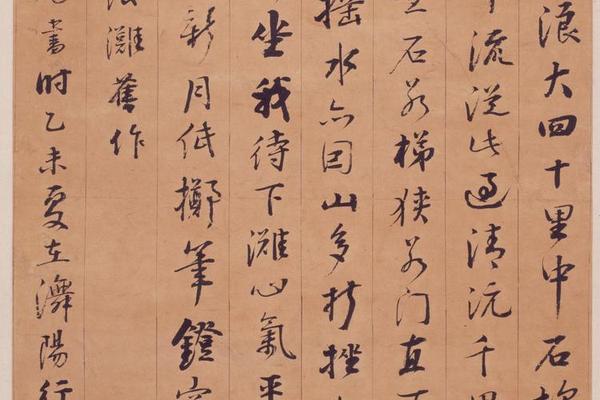 浪大四十里中石
流從此過清沅千
石若梯狹若门直
摇水亦因山多折挫
坐我待下灘心氣平
新月低擲筆鐙
灘舊作
書时乙未夏在濟陽行